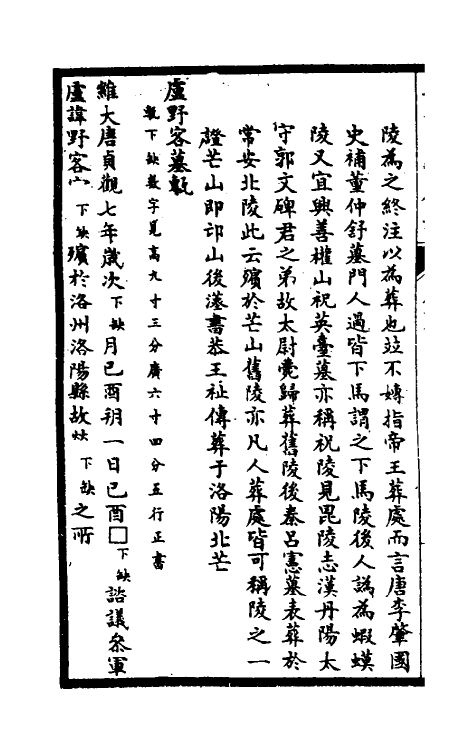 陵為之終注以為葬也竝不專指帝王葬處而言唐李肇國
史補董仲舒墓門人過皆下馬謂之下馬陵後人譌為蝦蟆
陵又宜興善權山祝英臺墓亦稱祝陵見毘陵志漢丹陽太
守郭文碑君之弟故太尉薨歸葬舊陵後秦呂憲墓表葬於
常安北陵此云殯於芒山舊陵亦凡人葬處皆可稱陵之一
證芒山即邙山後漢書恭王祉傳葬于洛陽北芒
盧野客墓甎
甎下缺數字見高九寸三分廣六寸四分五行正書
維大唐貞觀七年歲次下缺月己酉朔一日己酉□下缺諮議叅軍
盧諱野客宀下缺殯於洛州洛陽縣故下缺之所